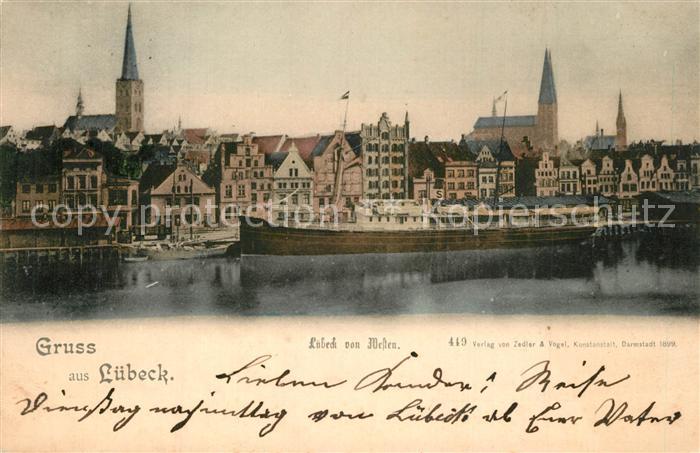 copyright oldthing.de copyright oldthing.de copyright
Gruss
aus Lübeck.
Lübeck von Westen.
449 Verlag von Zedler & Vogel, Kunstanstalt, Darmstadt 1899.
Lieben Kinder! Reise
Dienstag nachmittag von Lübeck ab Euer Vater